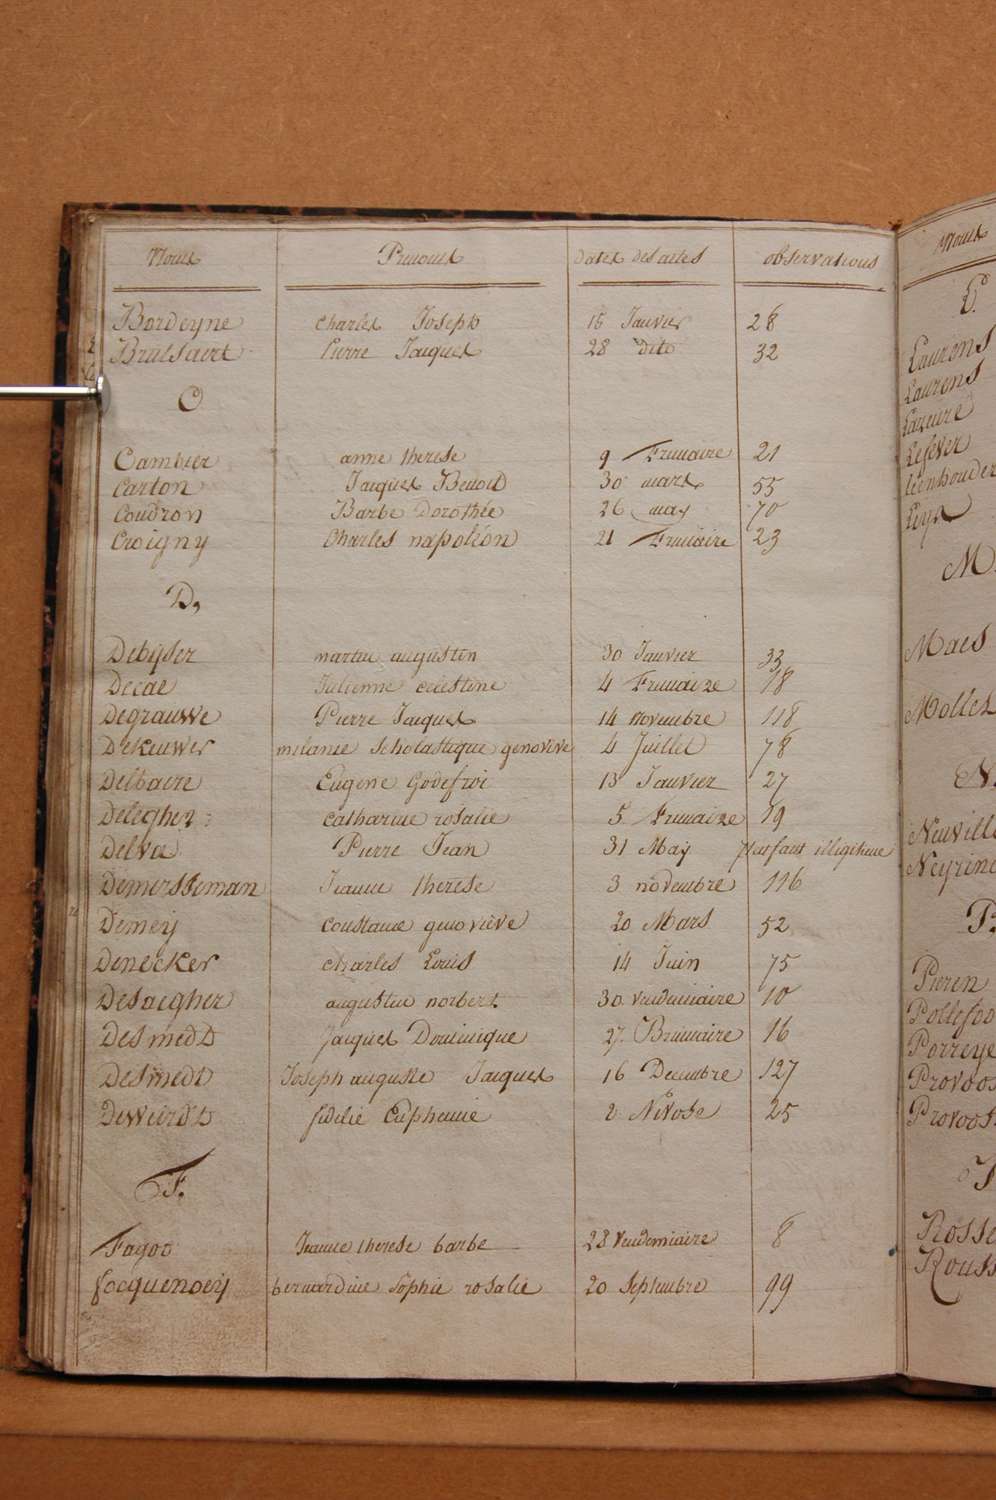 Noms Prenoms Dates des actes observations
Bordeyne Charles Joseph 15 Janvier 28
Brulsaert Pierre Jacques 28 dito 32
C
Cambier anne therese 9 Frimaire 21
Carton Jacques Benoit 30 mars 55
Coudron Barbe Dorothée 26 may 70
Croigny Charles napoléon 21 Frimaire 23
D.
Debijser martin augustin 30 Janvier 33
Decae Julienne celestine 4 Frimaire 18
Degrauwe Pierre Jacques 14 novembre 118
Dekeuwer melanie scholastique genovive 4 Juillet 78
Delbaere Eugene Godefroi 13 Janvier 27
Delegher catharine rosalie 5 Frimaire 19
Delva Pierre Jean 31 May
Demersseman Jeanne therese 3 novembre 116
Demey constance genoviève 20 Mars 52
Denecker Charles Louis 14 Juin 75
Desaegher augustin norbert 30 vendemiaire 10
Desmedt Jacques Dominique 27 Brumaire 16
Desmedt Joseph auguste Jacques 16 Decembre 127
Deweirdt fidelie Euphemie 2 Nivose 25
F.
Fagoo Jeanne therese barbe 23 Vendemiaire 8
focquenoey bernardine Sophie rosalie 20 Septembre 99
Noms
L.
Laurens
Laurens
Lazeure
Lefever
Leys
M.
Maes
N.
P.
Pieren